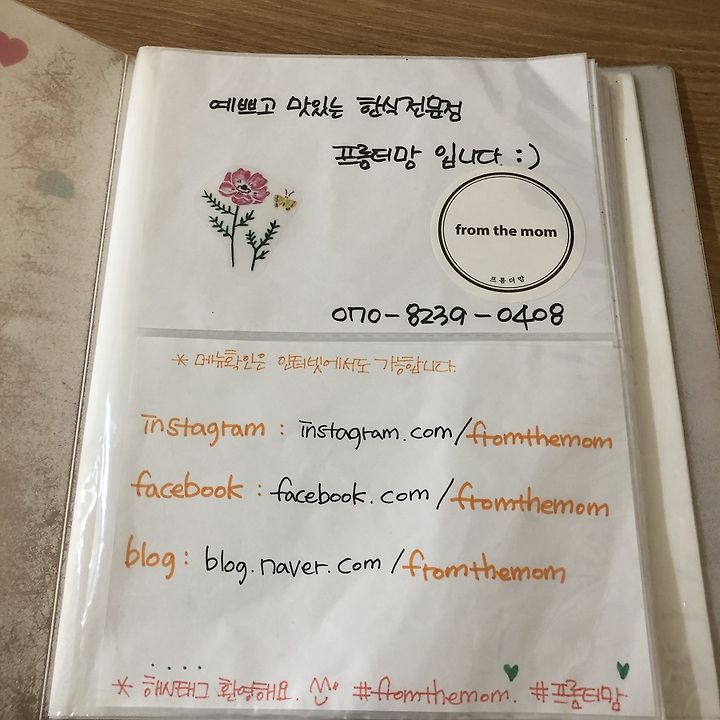 예쁘고 맛있는 한식전문점
프롬더맘 입니다 :)
from the mom
프롬더맘
070-8239-0408
* 메뉴확인은 인터넷에서도 가능합니다.
instagram : instagram.com/fromthemom
facebook : facebook.com/fromthemom
blog : blog.naver.com/fromthemom
* 해시태그 환영해요. #fromthemom. #프롬더맘